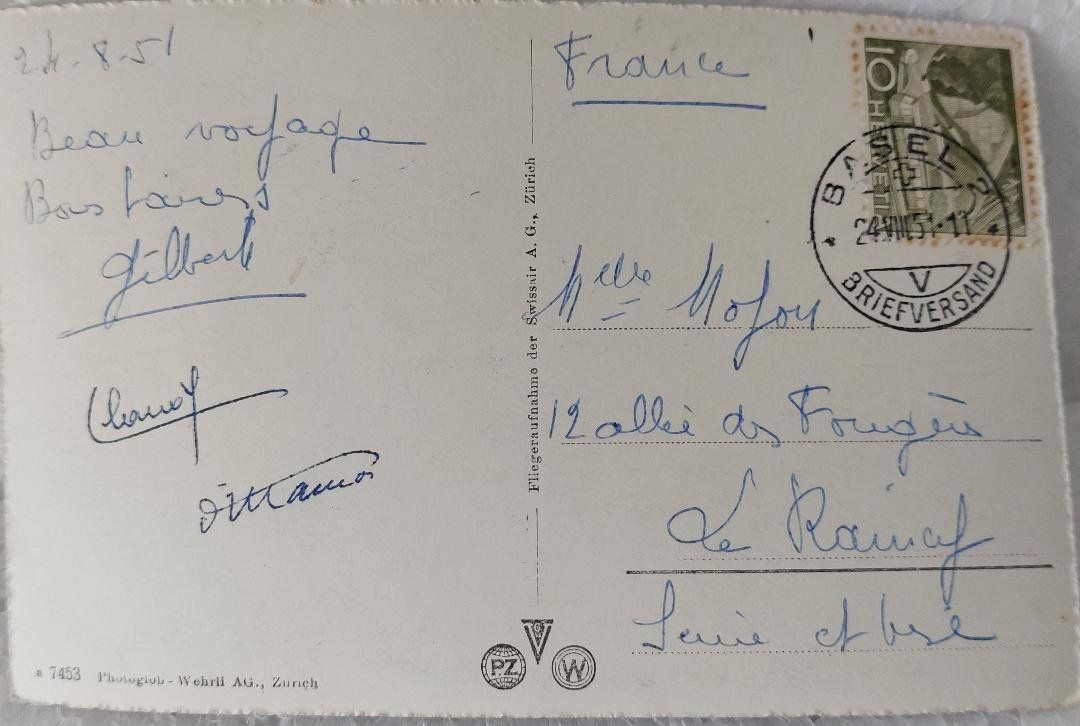 24-8-51
Beau voyage
Bons baisers
Gilbert
France
10 HELVETIA
BASEL 2
24.VIII.51-11
V
BRIEFVERSAND
Melle
12 allée des Fougères
Le Raincy
Seine et Oise
Fliegeraufnahme der Swissair A. G., Zürich
a 7453 Photoglob - Wehrli AG., Zürich
PZ
W